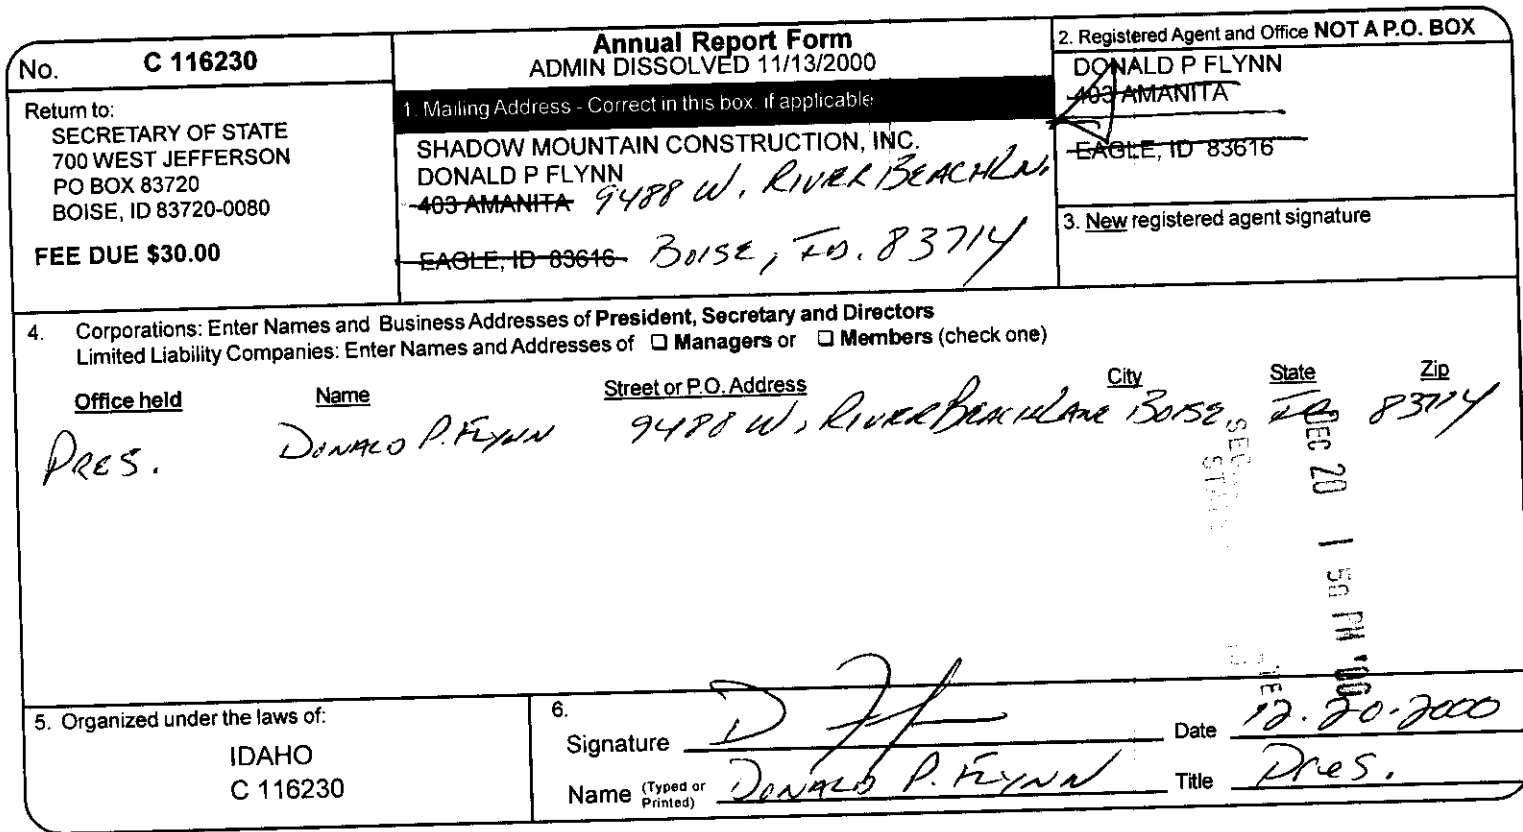 No. C 116230
Return to:
SECRETARY OF STATE
700 WEST JEFFERSON
PO BOX 83720
BOISE, ID 83720-0080
FEE DUE $30.00
Annual Report Form
ADMIN DISSOLVED 11/13/2000
1. Mailing Address - Correct in this box. if applicable
SHADOW MOUNTAIN CONSTRUCTION, INC.
DONALD P FLYNN
403 AMANITA 9488 W. RIVER BEACH LN.
EAGLE, ID 83616 BOISE, ID. 83714
2. Registered Agent and Office NOT A P.O. BOX
DONALD P FLYNN
403 AMANITA
EAGLE, ID 83616
3. New registered agent signature
4. Corporations: Enter Names and Business Addresses of President, Secretary and Directors
Limited Liability Companies: Enter Names and Addresses of ❑ Managers or ❑ Members (check one)
Office held Name Street or P.O. Address City State Zip
PRES. DONALD P. FLYNN 9488 W. RIVER BEACH LANE BOISE ID. 83714
DEC 20 1 50 PM '00
5. Organized under the laws of:
IDAHO
C 116230
6.
Signature D F Date 12.20.2000
Name (Typed or Printed) DONALD P. FLYNN Title Pres.